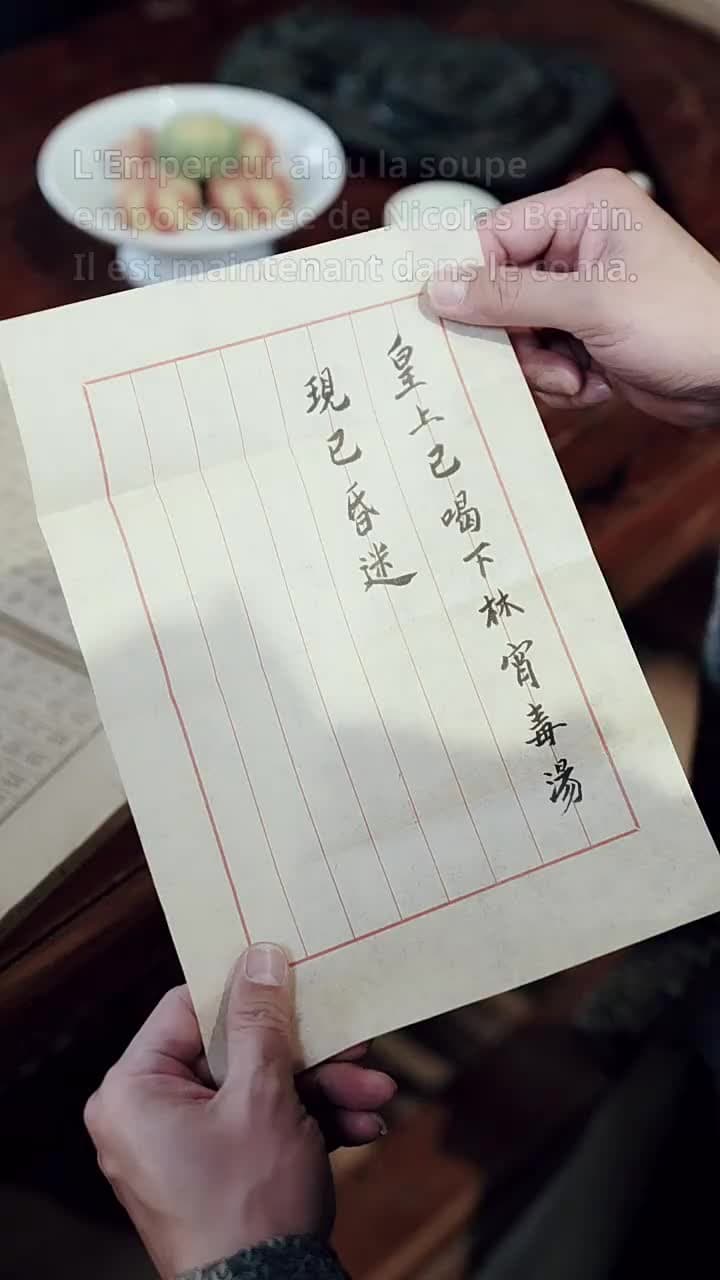 L'Empereur a bu la soupe
empoisonnée de Nicolas Bertin.
Il est maintenant dans le coma.
皇上已喝下林宵毒湯
現已昏迷